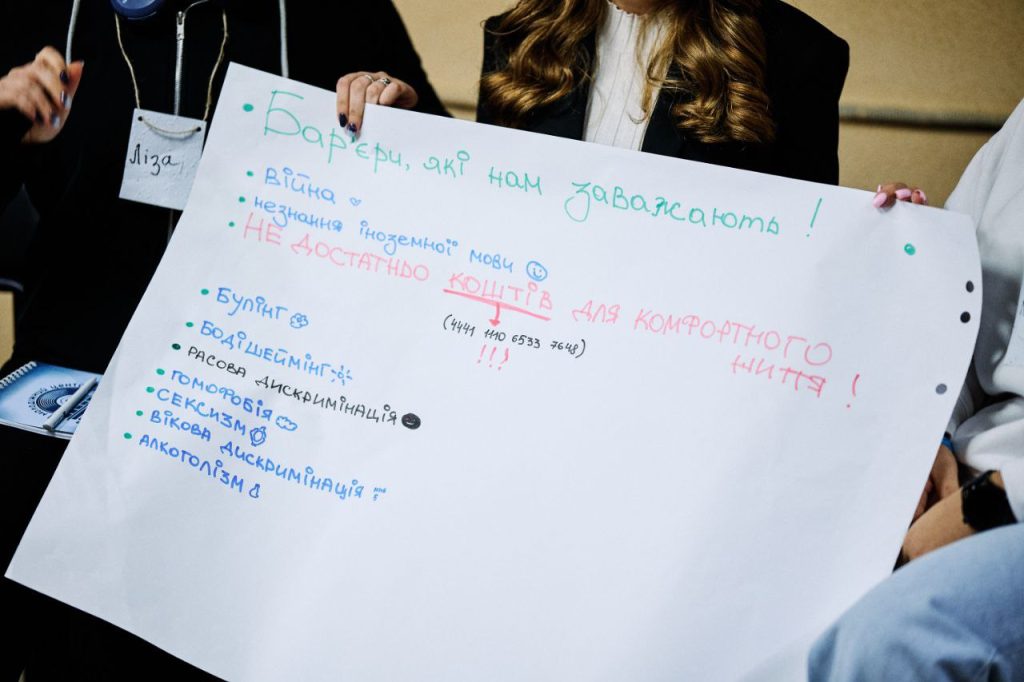 Ліза
• Бар'єри, які нам заважають!
• ВІЙНА
• незнання іноземної мови
• НЕ ДОСТАТНЬО КОШТІВ ДЛЯ КОМФОРТНОГО
життя!
(4441 1110 6533 7648)
!!!
• БУЛІНГ
• БОДІШЕЙМІНГ
• РАСОВА ДИСКРИМІНАЦІЯ
• ГОМОФОБІЯ
• СЕКСИЗМ
• ВІКОВА ДИСКРИМІНАЦІЯ
• АЛКОГОЛІЗМ